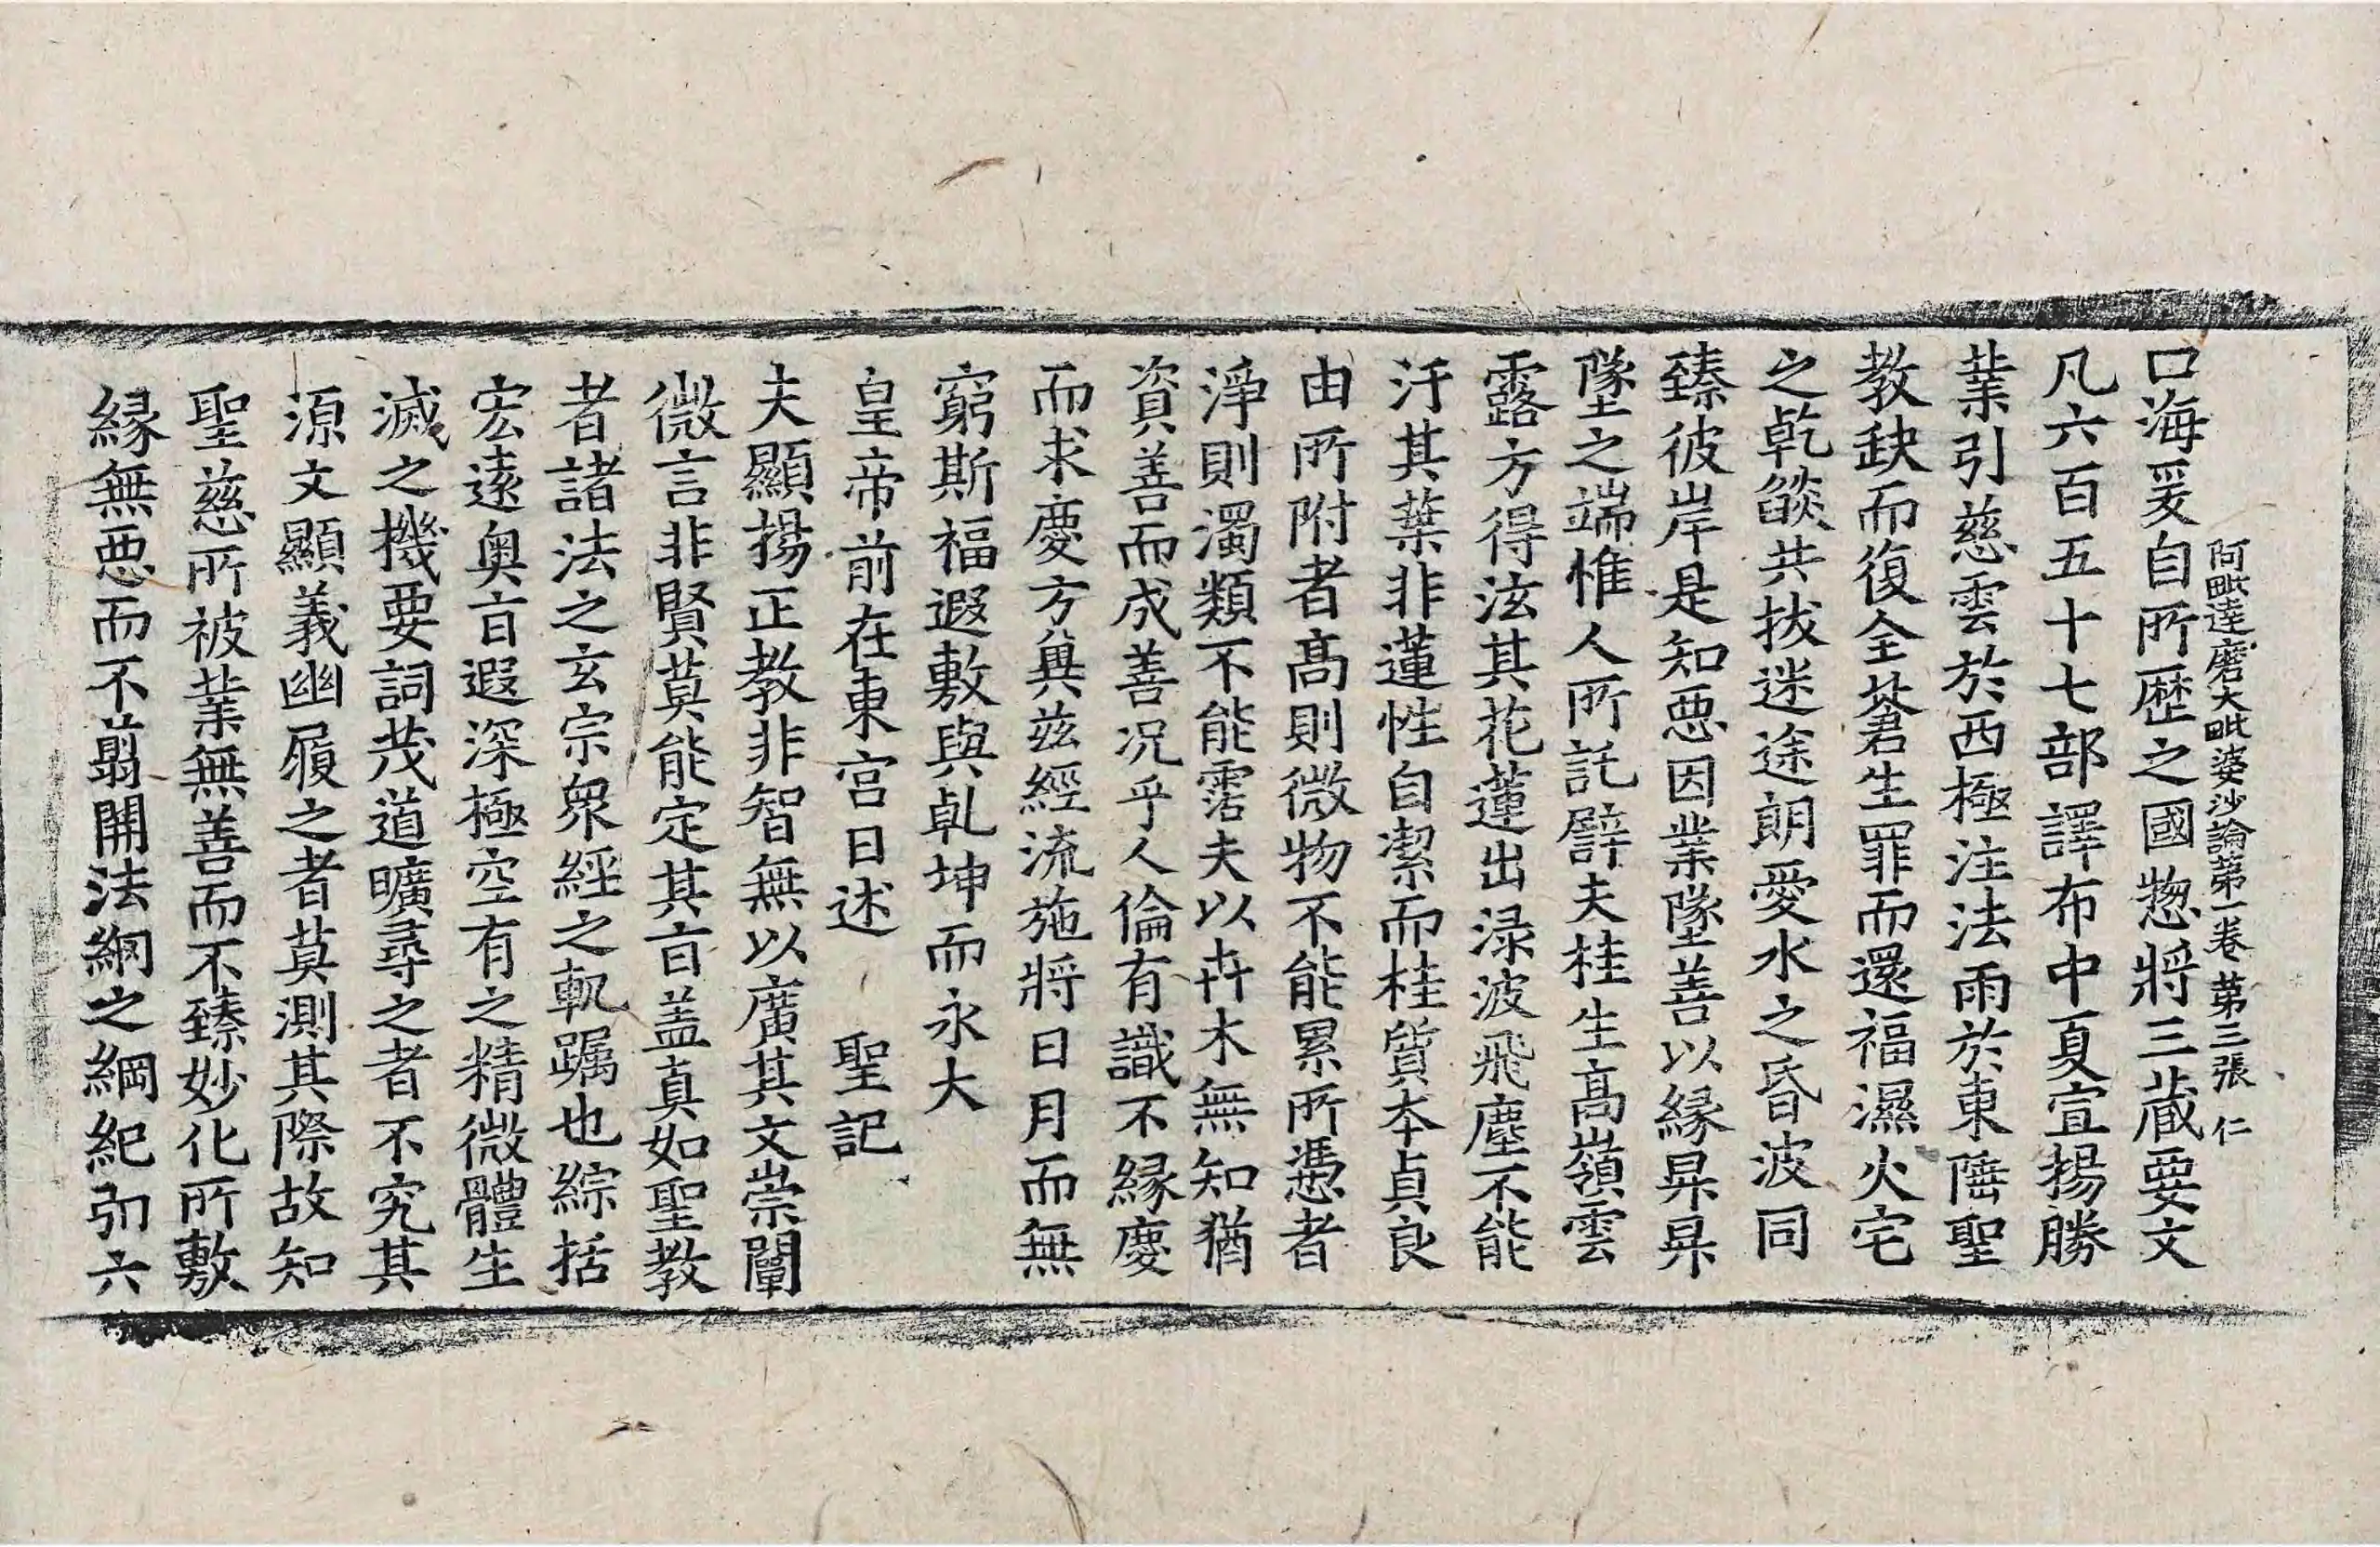 阿毗達磨大毗婆沙論第一卷 第三張 仁
口海爰自所歷之國惣將三藏要文
凡六百五十七部譯布中夏宣揚勝
業引慈雲於西極注法雨於東陲聖
教缺而復全蒼生罪而還福濕火宅
之乾燄共拔迷途朗愛水之昏波同
臻彼岸是知惡因業墜善以緣昇昇
墜之端惟人所託譬夫桂生高嶺雲
露方得泫其花蓮出渌波飛塵不能
汙其葉非蓮性自潔而桂質本貞良
由所附者高則微物不能累所憑者
淨則濁類不能霑夫以卉木無知猶
資善而成善況乎人倫有識不緣慶
而求慶方兾茲經流施將日月而無
窮斯福遐敷與乹坤而永大
皇帝前在東宮日述 聖記
夫顯揚正教非智無以廣其文崇闡
微言非賢莫能定其旨盖真如聖教
者諸法之玄宗衆經之軌躅也綜括
宏遠奧旨遐深極空有之精微體生
滅之機要詞茂道曠尋之者不究其
源文顯義幽履之者莫測其際故知
聖慈所被業無善而不臻妙化所敷
緣無惡而不翦開法網之綱紀弘六